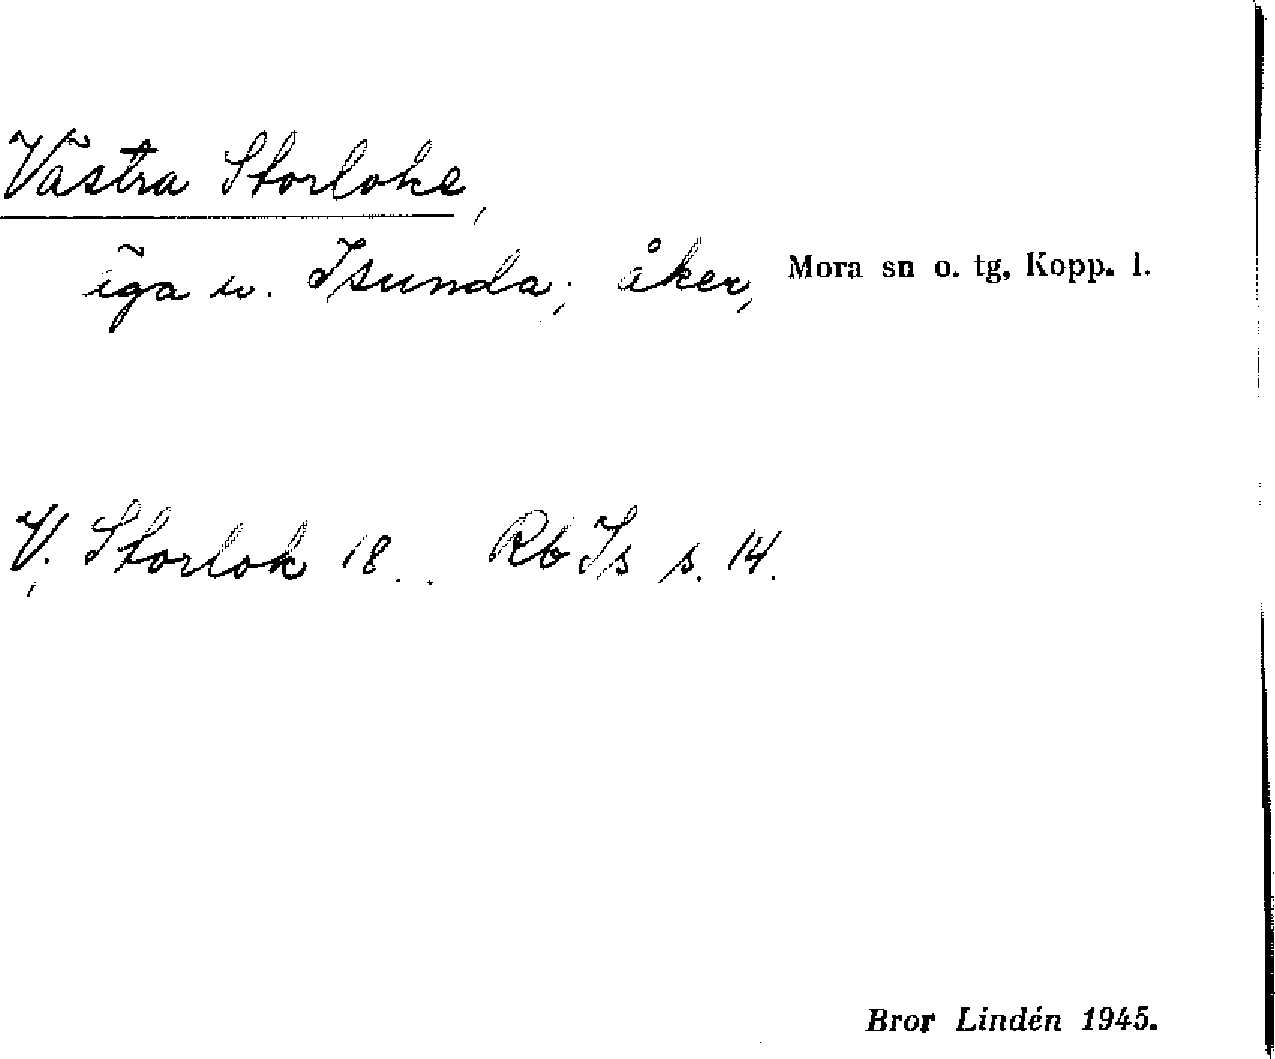 Västra Storloke,
äga u. Isunda; åker, Mora sn o. tg, Kopp. l.
V. Storlok 18.. Rb Is s. 14.
Bror Lindén 1945.